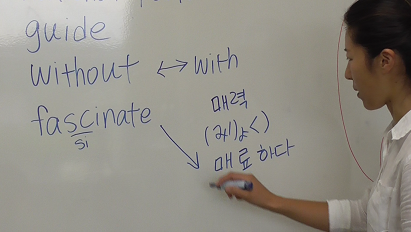 guide
without ↔ with
fascinate
si
매력
(みりょく)
매료하다